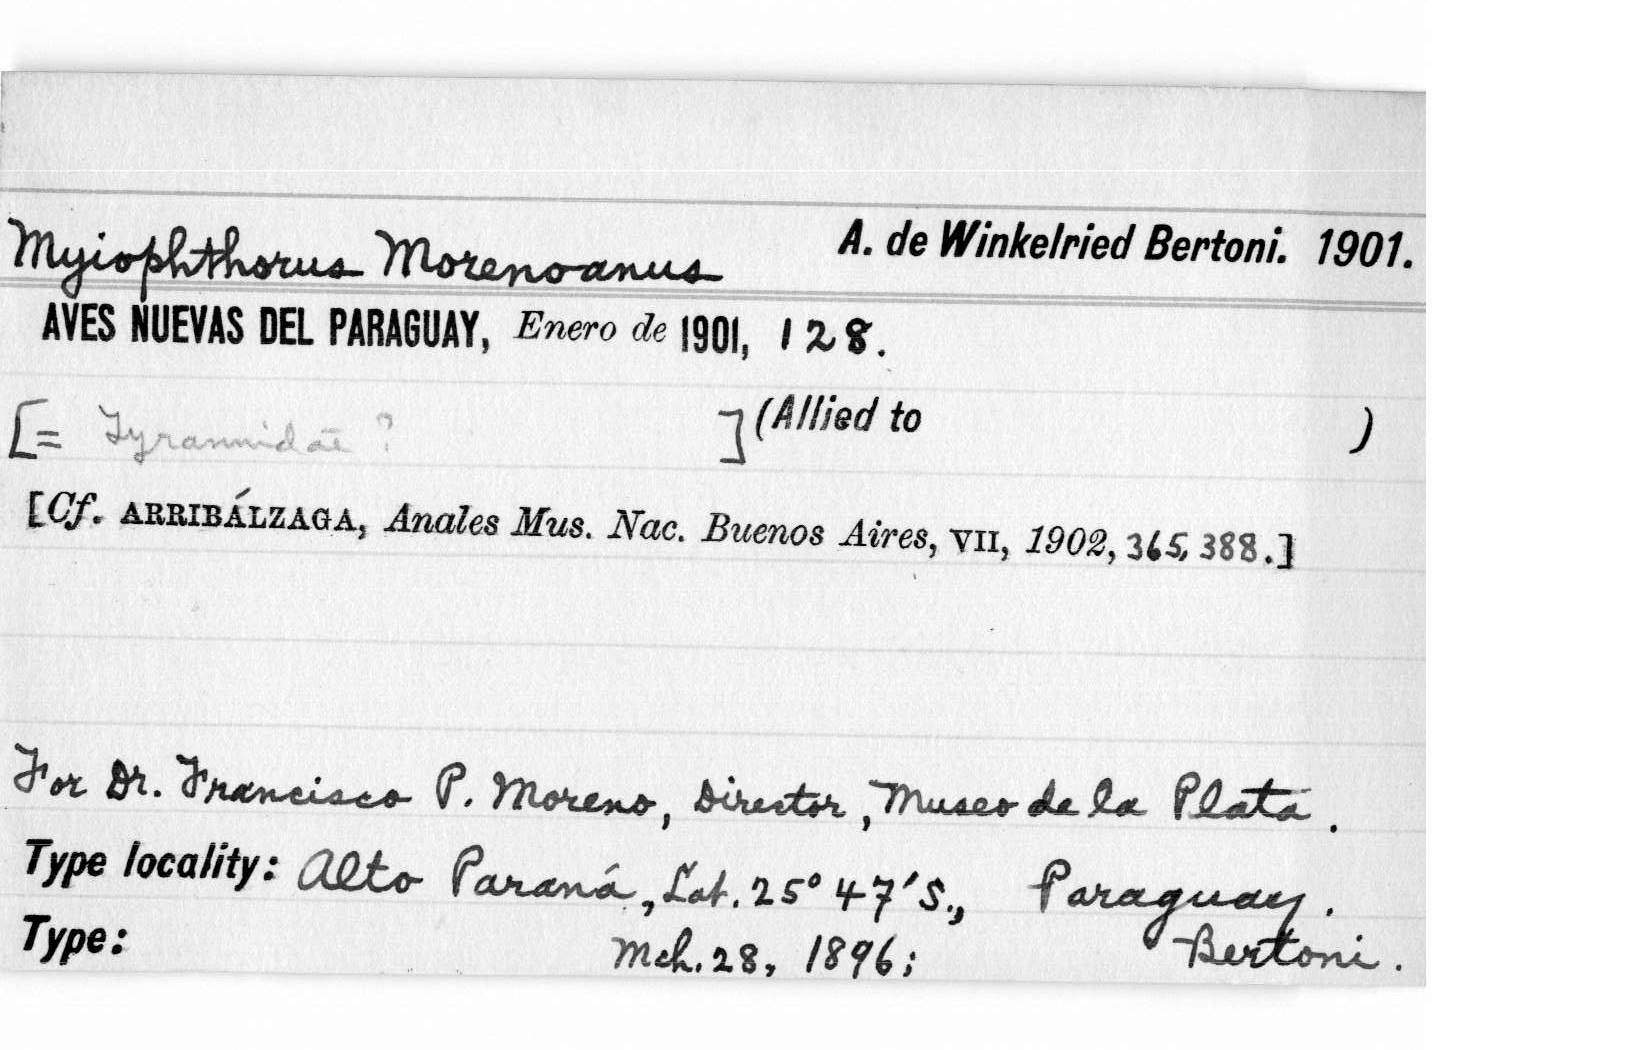 Myiophthorus Morenoanus A. de Winkelried Bertoni. 1901.
AVES NUEVAS DEL PARAGUAY, Enero de 1901, 128.
[= Tyrannidae ? ] (Allied to )
[Cf. ARRIBÁLZAGA, Anales Mus. Nac. Buenos Aires, VII, 1902, 365, 388.]
For Dr. Francisco P. Moreno, Director, Museo de la Plata.
Type locality: Alto Paraná, Lat. 25° 47' S., Paraguay.
Type: Mch. 28, 1896; Bertoni.